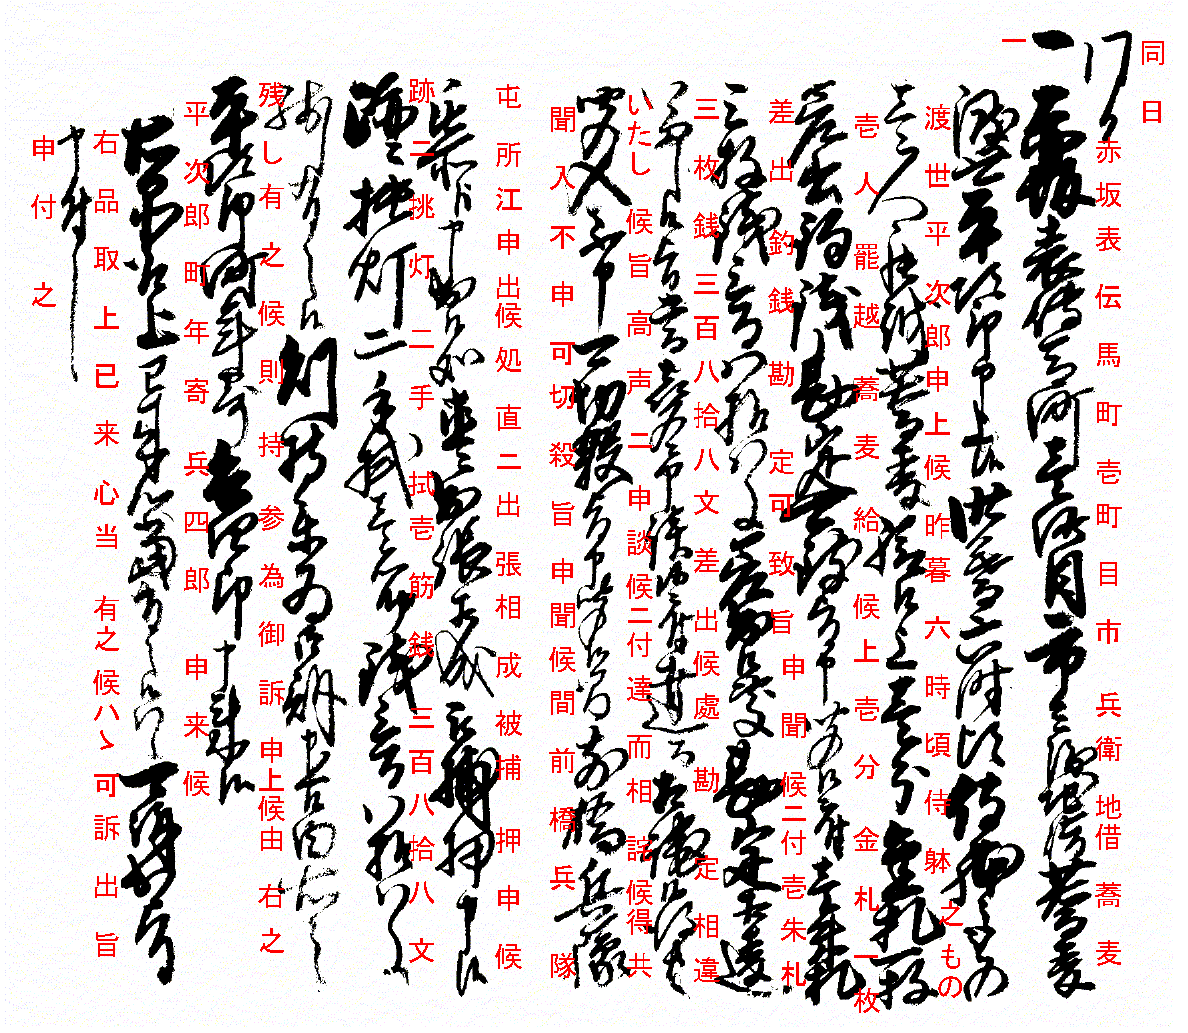 同日
一 赤坂表伝馬町壱町目市兵衛地借蕎麦
渡世平次郎申上候昨暮六時頃侍躰之もの
壱人罷越蕎麦給候上壱分金札一枚
差出釣銭勘定可致旨申聞候ニ付壱朱札
三枚銭三百八拾八文差出候處勘定相違
いたし候旨高声ニ申談候ニ付達而相詫候得共
聞入不申可切殺旨申聞候間前橋兵隊
屯所江申出候処直ニ出張相成被捕押申候
跡ニ挑灯二手拭壱筋銭三百八拾八文
残し有之候則持参為御訴申上候由右之
平次郎町年寄兵四郎申来候
右品取上已来心当有之候ハゝ可訴出旨
申付之